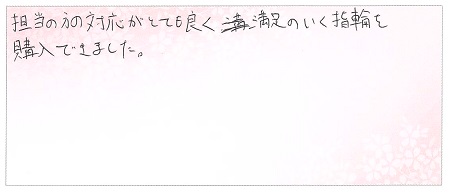 担当の方の対応がとても良く 満足のいく指輪を
購入できました。